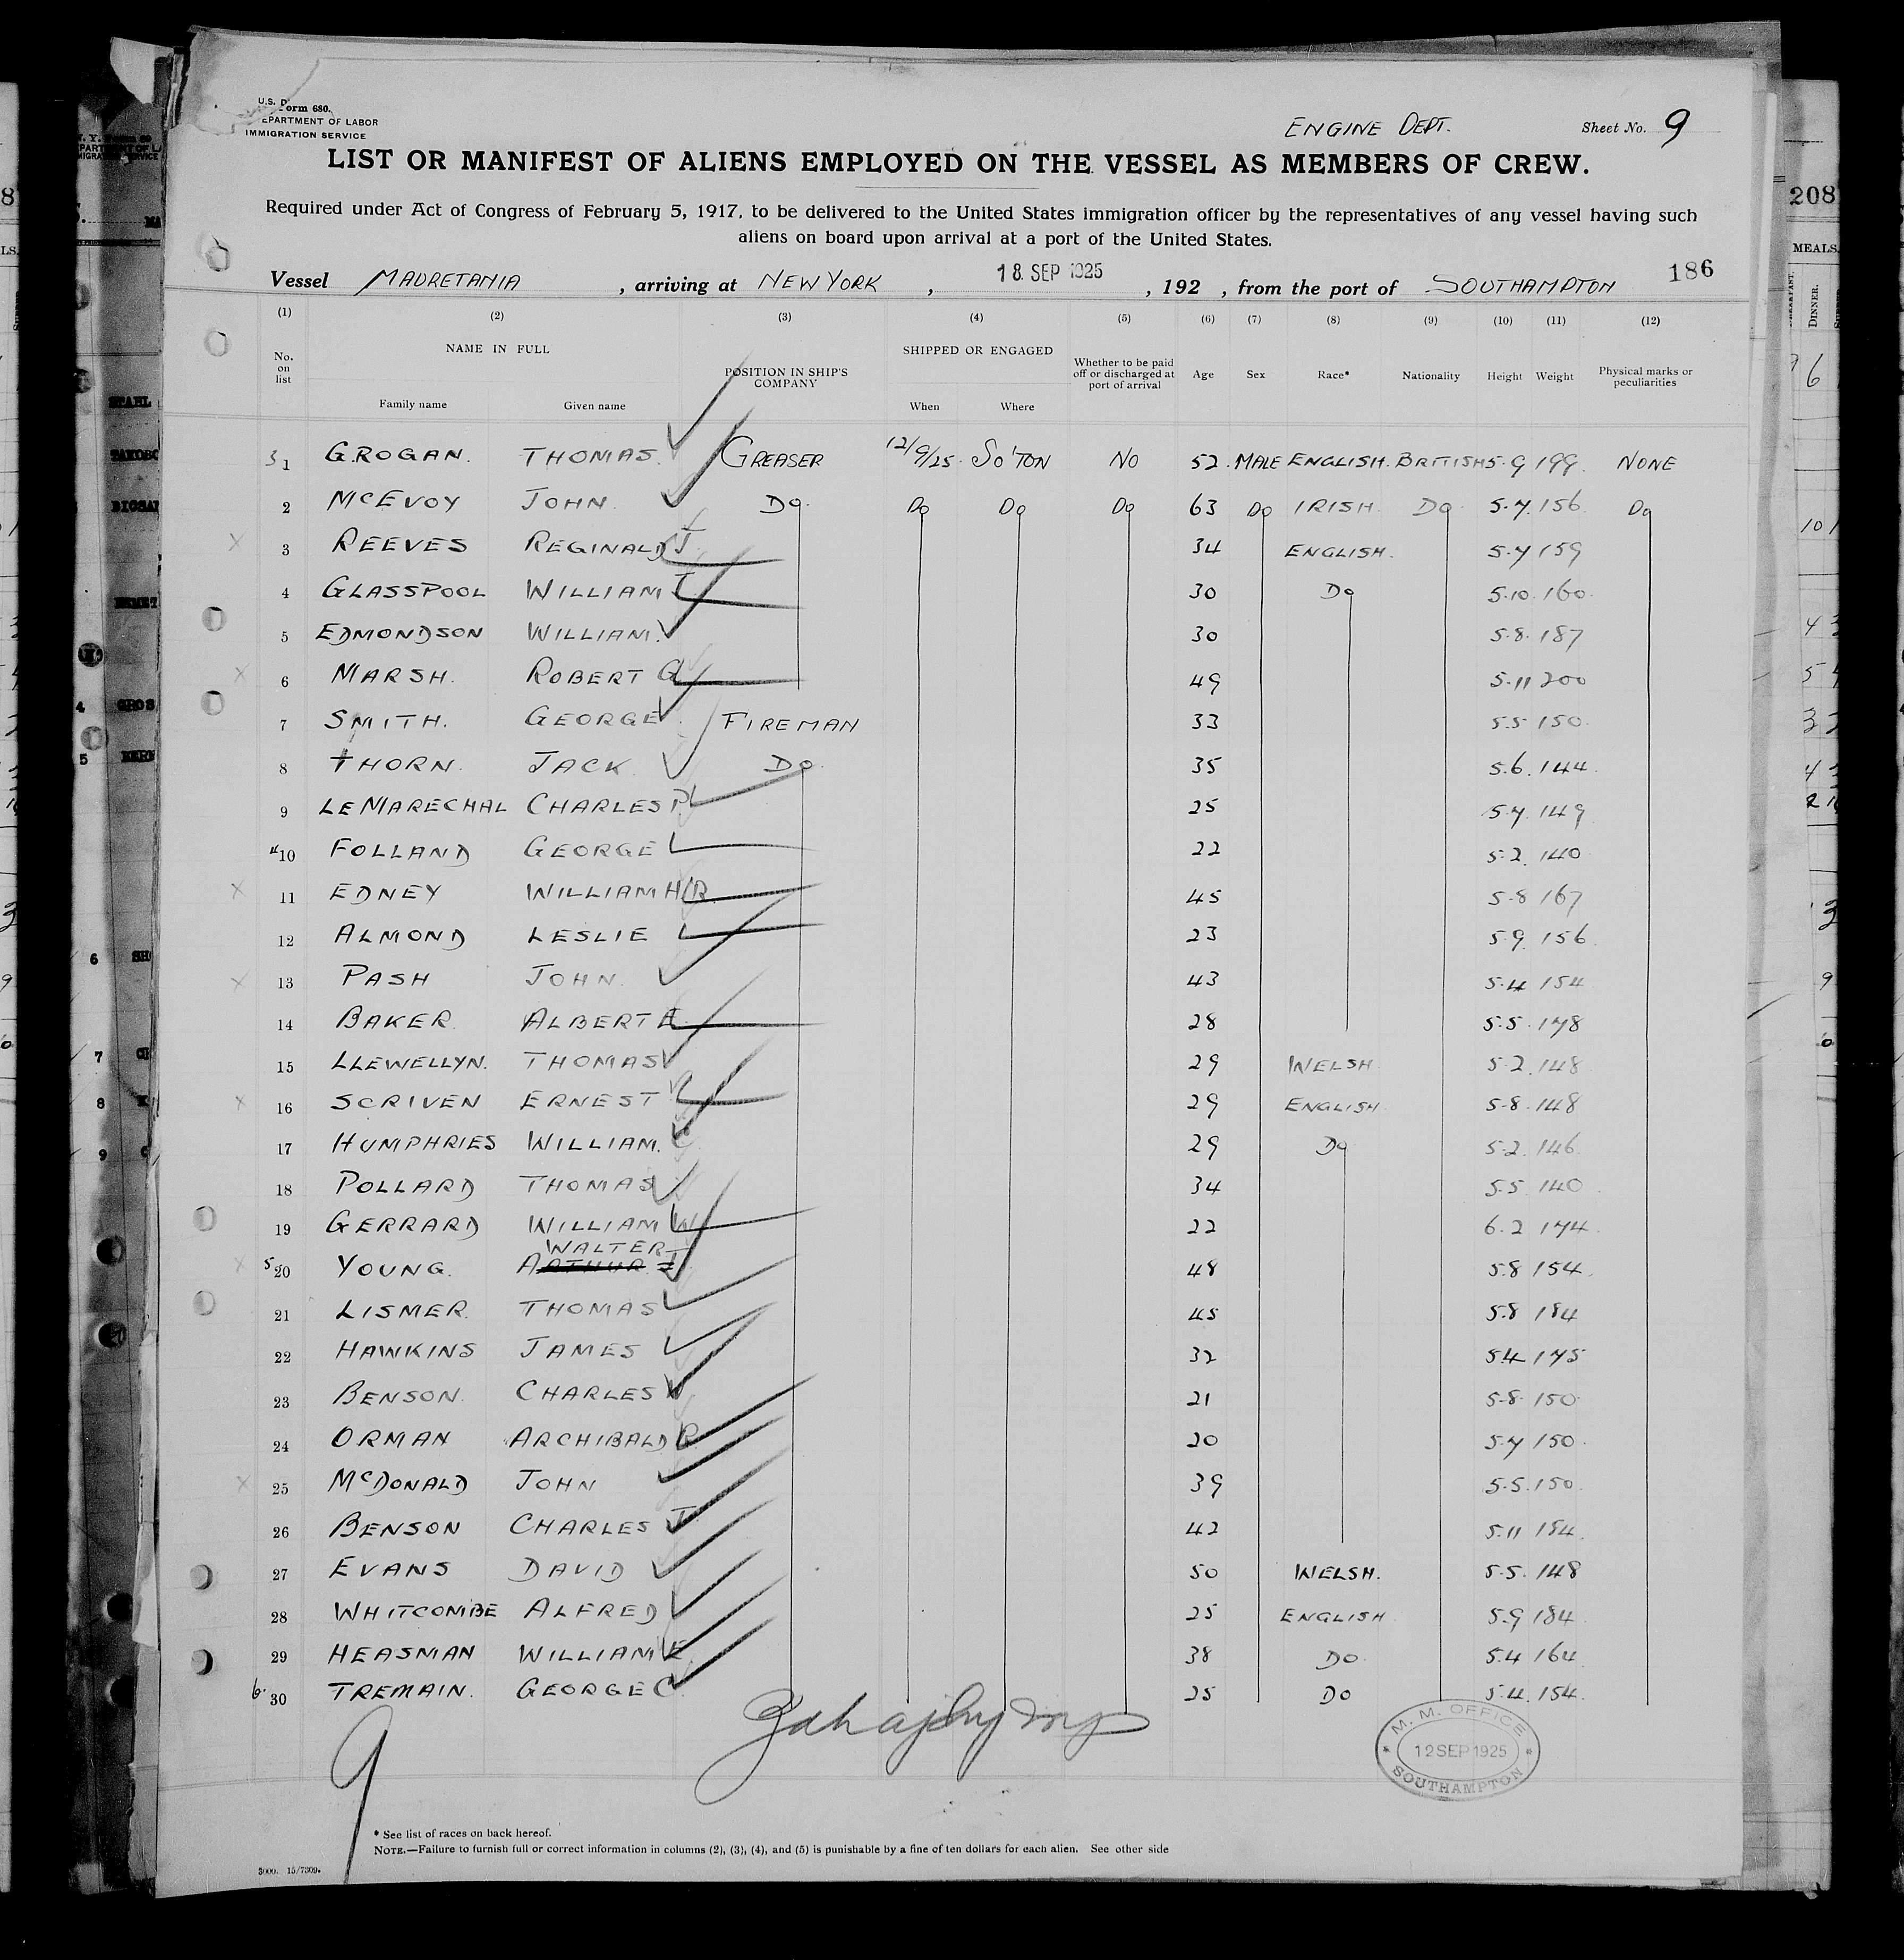 U.S. D
Form 680.
EPARTMENT OF LABOR
IMMIGRATION SERVICE
ENGINE DEPT.
Sheet No. 9
LIST OR MANIFEST OF ALIENS EMPLOYED ON THE VESSEL AS MEMBERS OF CREW.
Required under Act of Congress of February 5, 1917, to be delivered to the United States immigration officer by the representatives of any vessel having such
aliens on board upon arrival at a port of the United States.
Vessel MAURETANIA , arriving at NEW YORK , 18 SEP 1925 , 192 , from the port of SOUTHAMPTON 186
(1) (2) (3) (4) (5) (6) (7) (8) (9) (10) (11) (12)
No. on list NAME IN FULL POSITION IN SHIP'S COMPANY SHIPPED OR ENGAGED Whether to be paid off or discharged at port of arrival Age Sex Race* Nationality Height Weight Physical marks or peculiarities
Family name Given name When Where
3 1 GROGAN. THOMAS. GREASER 12/9/25. SO'TON NO 52. MALE ENGLISH. BRITISH 5.9 199. NONE
2 McEVOY JOHN. Do Do Do Do 63 Do IRISH. Do 5.7. 156 Do
3 REEVES REGINALD J. 34 ENGLISH. 5.7 159
4 GLASSPOOL WILLIAM J 30 Do 5.10. 160.
5 EDMONDSON WILLIAM. 30 5.8. 187
6 MARSH. ROBERT G. 49 5.11 200
7 SMITH. GEORGE. FIREMAN 33 5.5 150.
8 THORN. JACK Do. 35 5.6. 144.
9 LE MARECHAL CHARLES P. 25 5.7. 149
4 10 FOLLAND GEORGE 22 5.2. 140
11 EDNEY WILLIAM H.R. 45 5.8 167
12 ALMOND LESLIE 23 5.9. 156
13 PASH JOHN. 43 5.4 154
14 BAKER ALBERT E. 28 5.5. 178
15 LLEWELLYN. THOMAS 29 WELSH. 5.2. 148
16 SCRIVEN ERNEST 29 ENGLISH. 5.8. 148
17 HUMPHRIES WILLIAM. C 29 Do 5.2. 146.
18 POLLARD THOMAS 34 5.5. 140
19 GERRARD WILLIAM W 22 6.2 174.
WALTER
5 20 YOUNG. ARTHUR J. 48 5.8 154.
21 LISMER. THOMAS 45 5.8 184
22 HAWKINS JAMES 32 5.4 175
23 BENSON. CHARLES W 21 5.8. 150.
24 ORMAN ARCHIBALD R. 20 5.7 150.
25 McDONALD JOHN 39 5.5. 150.
26 BENSON CHARLES J. 42 5.11 154.
27 EVANS DAVID 50 WELSH. 5.5. 148
28 WHITCOMBE ALFRED 25 ENGLISH 5.9 184.
29 HEASMAN WILLIAM E. 38 Do. 5.4 164
6. 30 TREMAIN. GEORGE C. 25 Do 5.4. 154.
9
M. M. OFFICE
12 SEP 1925
SOUTHAMPTON
* See list of races on back hereof.
NOTE.—Failure to furnish full or correct information in columns (2), (3), (4), and (5) is punishable by a fine of ten dollars for each alien. See other side
3000. 15/7309.
208
MEALS.
DINNER.